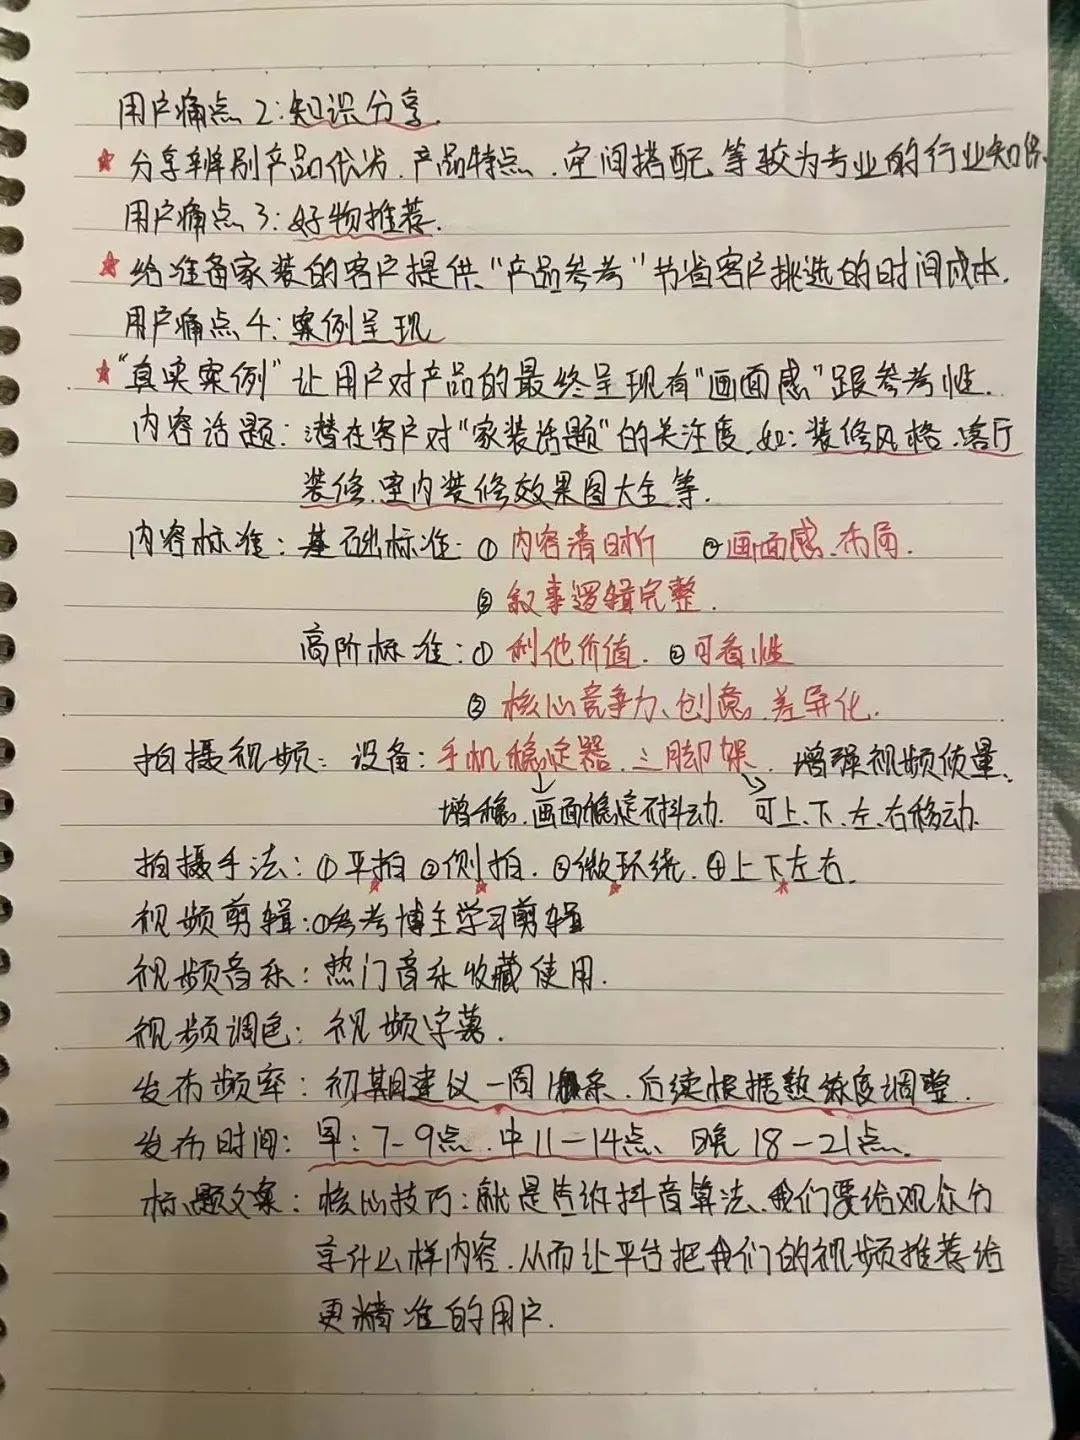 用户痛点2:知识分享.
★ 分享辨别产品优劣.产品特点.空间搭配等较为专业的行业知识.
用户痛点3:好物推荐.
★ 给准备家装的客户提供"产品参考"节省客户挑选的时间成本.
用户痛点4:案例呈现
★ "真实案例"让用户对产品的最终呈现有"画面感"跟参考性.
内容话题:潜在客户对"家装话题"的关注度.如:装修风格.客厅
装修.室内装修效果图大全等.
内容标准:基础标准:①内容清晰 ②画面感.布局.
③叙事逻辑完整.
高阶标准:①利他价值. ②可看性
③核心竞争力、创意.差异化.
拍摄视频:设备:手机稳定器.三脚架.增强视频质量.
增稳.画面稳定不抖动. 可上、下、左、右移动.
拍摄手法:①平拍 ②侧拍.③微环绕.④上下左右.
视频剪辑:①参考博主学习剪辑
视频音乐:热门音乐收藏使用.
视频调色:视频字幕.
发布频率:初期建议一周条.后续根据熟练度调整.
发布时间:早:7-9点.中11-14点、晚18-21点.
标题文案:核心技巧:就是告诉抖音算法、我们要给观众分
享什么样内容.从而让平台把我们的视频推荐给
更精准的用户.